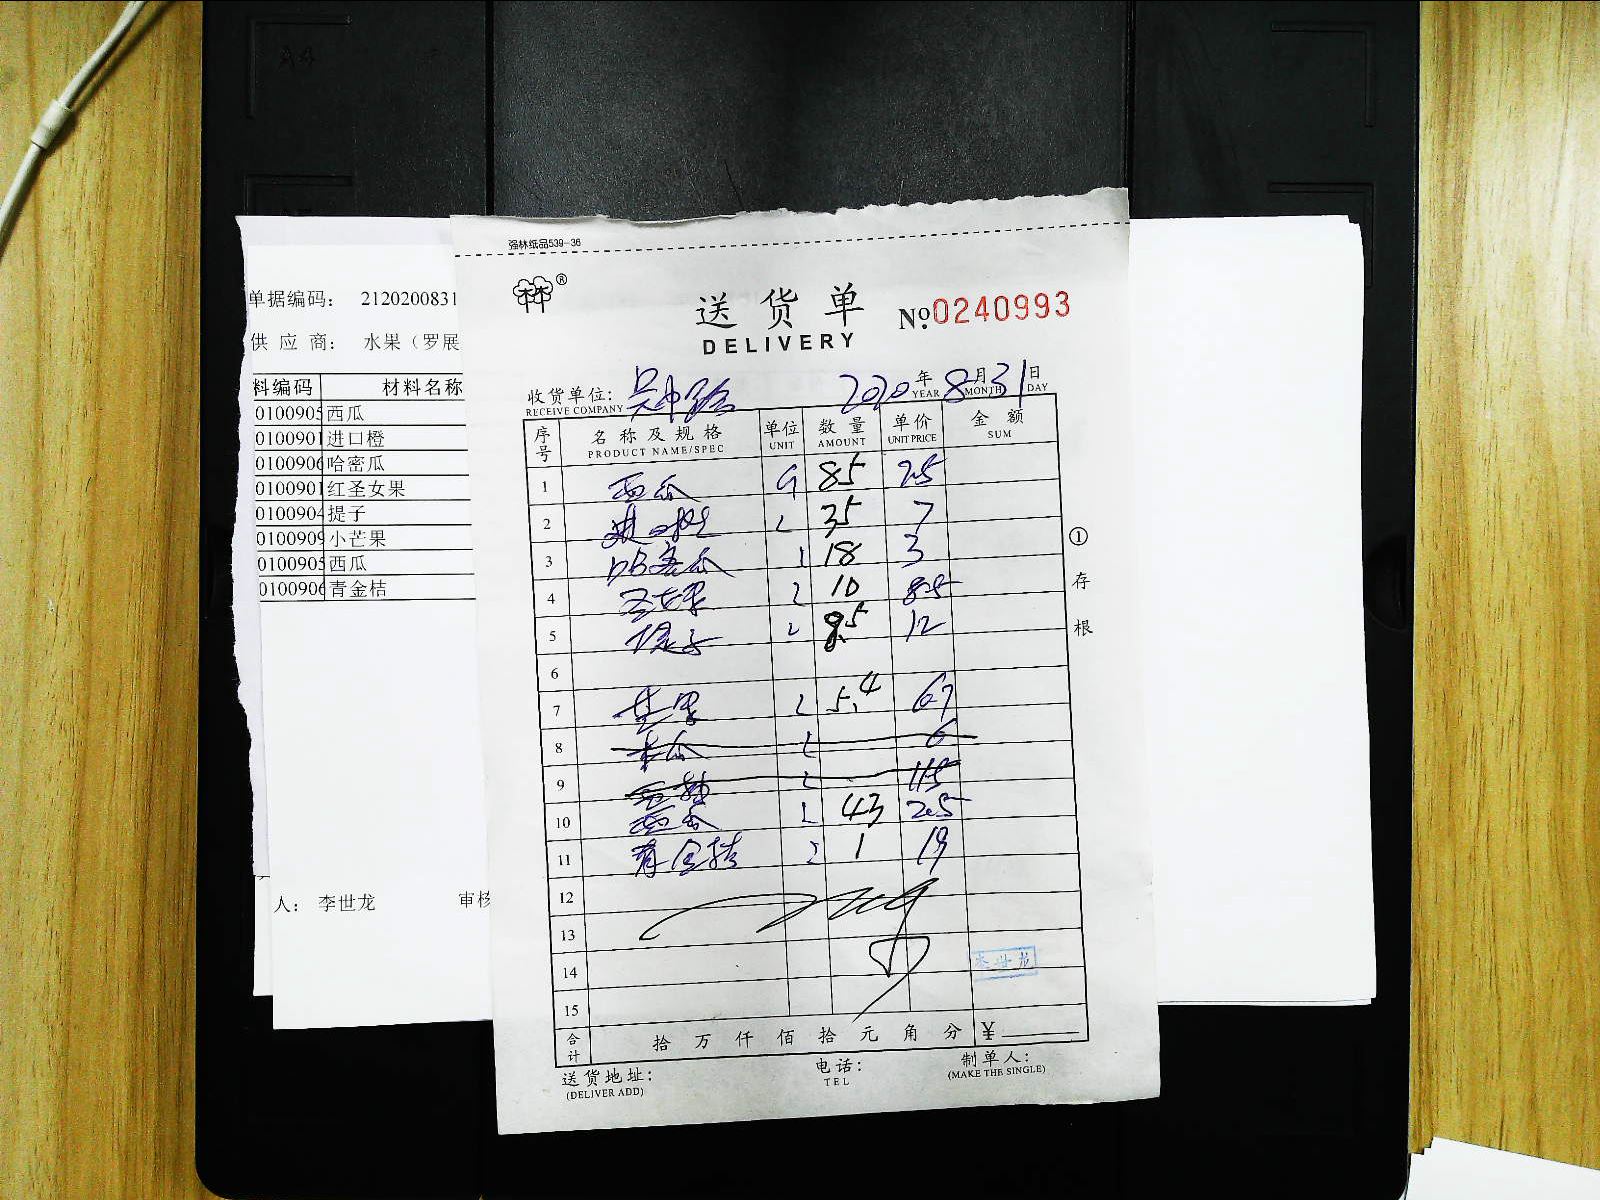 强林纸品539-36
林®
送货单 №0240993
DELIVERY
收货单位: 吴中路 2020年8月31日
RECEIVE COMPANY YEAR MONTH DAY
序号 名称及规格 单位 数量 单价 金额
PRODUCT NAME/SPEC UNIT AMOUNT UNIT PRICE SUM
1 西瓜 85 2.5
2 进口橙 35 7
3 哈密瓜 18 3
4 圣女果 10 8.5
5 提子 12
6
7 芒果 5.4 6.7
8 木瓜 6
9 11.5
10 西瓜 43 2.5
11 青金桔 1 19
12
13
14 李世龙
15
合计 拾万仟佰拾元角分 ¥
送货地址: 电话: 制单人:
(DELIVER ADD) TEL (MAKE THE SINGLE)
①存根
单据编码: 2120200831
供应商: 水果（罗展
料编码 材料名称
0100905 西瓜
0100901 进口橙
0100906 哈密瓜
0100901 红圣女果
0100904 提子
0100909 小芒果
0100905 西瓜
0100906 青金桔
人: 李世龙 审核
A4